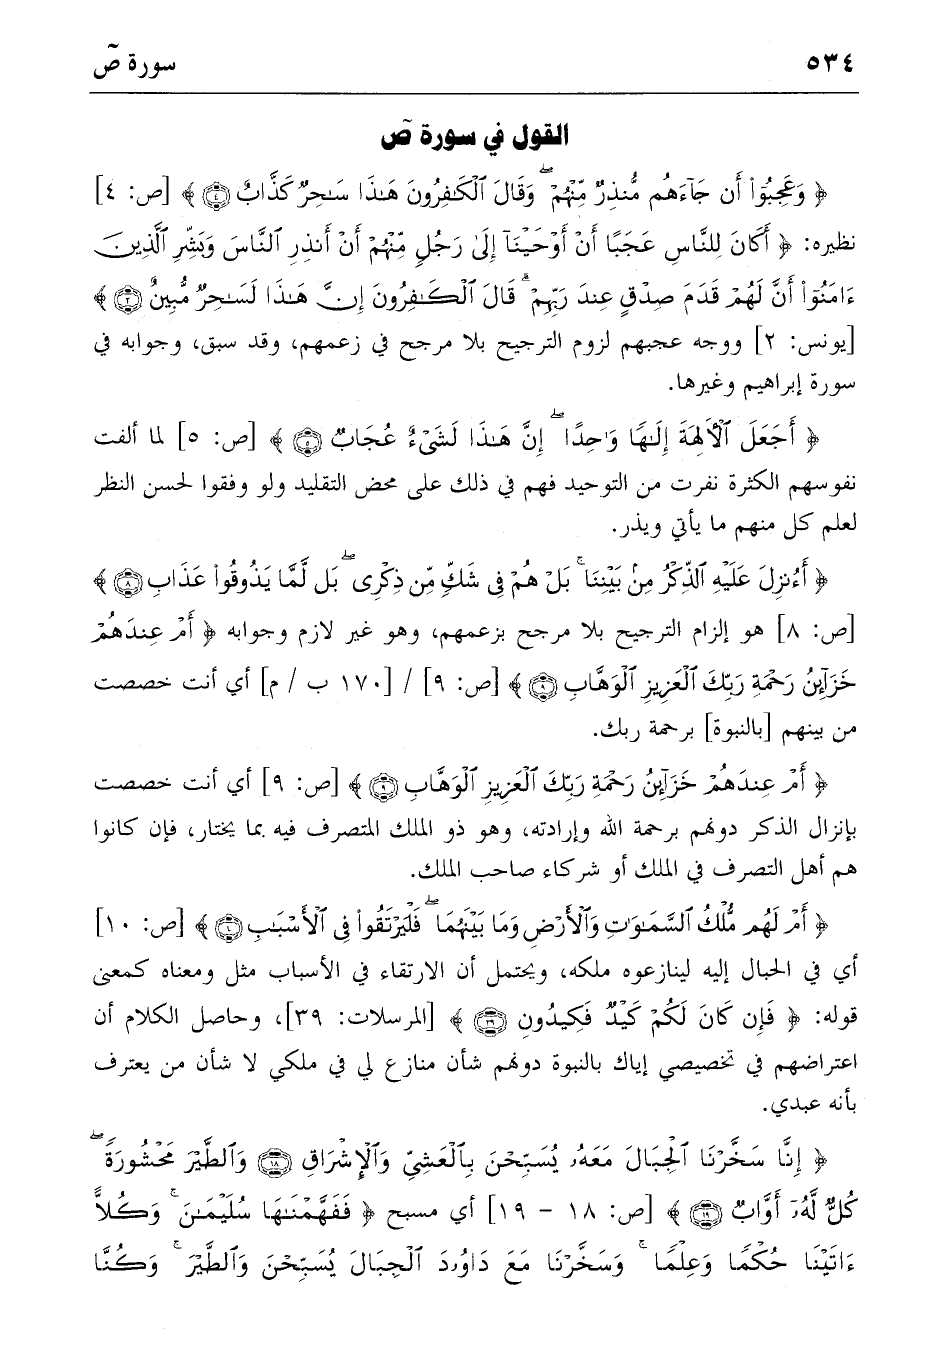 ٥٣٤
سورة صٓ
القول في سورة صٓ
﴿ وَعَجِبُوٓا۟ أَن جَآءَهُم مُّنذِرٌ مِّنْهُمْ ۖ وَقَالَ ٱلْكَـٰفِرُونَ هَـٰذَا سَـٰحِرٌ كَذَّابٌ ۝٤ ﴾ [ص: ٤]
نظيره: ﴿ أَكَانَ لِلنَّاسِ عَجَبًا أَنْ أَوْحَيْنَآ إِلَىٰ رَجُلٍ مِّنْهُمْ أَنْ أَنذِرِ ٱلنَّاسَ وَبَشِّرِ ٱلَّذِينَ
ءَامَنُوٓا۟ أَنَّ لَهُمْ قَدَمَ صِدْقٍ عِندَ رَبِّهِمْ ۗ قَالَ ٱلْكَـٰفِرُونَ إِنَّ هَـٰذَا لَسَـٰحِرٌ مُّبِينٌ ۝٢ ﴾
[يونس: ٢] ووجه عجبهم لزوم الترجيح بلا مرجح في زعمهم، وقد سبق، وجوابه في
سورة إبراهيم وغيرها.
﴿ أَجَعَلَ ٱلْـَٔالِهَةَ إِلَـٰهًا وَٰحِدًا ۖ إِنَّ هَـٰذَا لَشَىْءٌ عُجَابٌ ۝٥ ﴾ [ص: ٥] لما ألفت
نفوسهم الكثرة نفرت من التوحيد فهم في ذلك على محض التقليد ولو وفقوا لحسن النظر
لعلم كل منهم ما يأتي ويذر.
﴿ أَءُنزِلَ عَلَيْهِ ٱلذِّكْرُ مِنۢ بَيْنِنَا ۚ بَلْ هُمْ فِى شَكٍّ مِّن ذِكْرِى ۖ بَل لَّمَّا يَذُوقُوا۟ عَذَابِ ۝٨ ﴾
[ص: ٨] هو إلزام الترجيح بلا مرجح بزعمهم، وهو غير لازم وجوابه ﴿ أَمْ عِندَهُمْ
خَزَآئِنُ رَحْمَةِ رَبِّكَ ٱلْعَزِيزِ ٱلْوَهَّابِ ۝٩ ﴾ [ص: ٩] / [١٧٠ ب / م] أي أنت خصصت
من بينهم [بالنبوة] برحمة ربك.
﴿ أَمْ عِندَهُمْ خَزَآئِنُ رَحْمَةِ رَبِّكَ ٱلْعَزِيزِ ٱلْوَهَّابِ ۝٩ ﴾ [ص: ٩] أي أنت خصصت
بإنزال الذكر دونهم برحمة الله وإرادته، وهو ذو الملك المتصرف فيه بما يختار، فإن كانوا
هم أهل التصرف في الملك أو شركاء صاحب الملك.
﴿ أَمْ لَهُم مُّلْكُ ٱلسَّمَـٰوَٰتِ وَٱلْأَرْضِ وَمَا بَيْنَهُمَا ۖ فَلْيَرْتَقُوا۟ فِى ٱلْأَسْبَـٰبِ ۝١٠ ﴾ [ص: ١٠]
أي في الحبال إليه لينازعوه ملكه، ويحتمل أن الارتقاء في الأسباب مثل ومعناه كمعنى
قوله: ﴿ فَإِن كَانَ لَكُمْ كَيْدٌ فَكِيدُونِ ۝٣٩ ﴾ [المرسلات: ٣٩]، وحاصل الكلام أن
اعتراضهم في تخصيصي إياك بالنبوة دونهم شأن منازع لي في ملكي لا شأن من يعترف
بأنه عبدي.
﴿ إِنَّا سَخَّرْنَا ٱلْجِبَالَ مَعَهُۥ يُسَبِّحْنَ بِٱلْعَشِىِّ وَٱلْإِشْرَاقِ ۝١٨ وَٱلطَّيْرَ مَحْشُورَةً ۖ
كُلٌّ لَّهُۥٓ أَوَّابٌ ۝١٩ ﴾ [ص: ١٨ - ١٩] أي مسبح ﴿ فَفَهَّمْنَـٰهَا سُلَيْمَـٰنَ ۚ وَكُلًّا
ءَاتَيْنَا حُكْمًا وَعِلْمًا ۚ وَسَخَّرْنَا مَعَ دَاوُۥدَ ٱلْجِبَالَ يُسَبِّحْنَ وَٱلطَّيْرَ ۚ وَكُنَّا